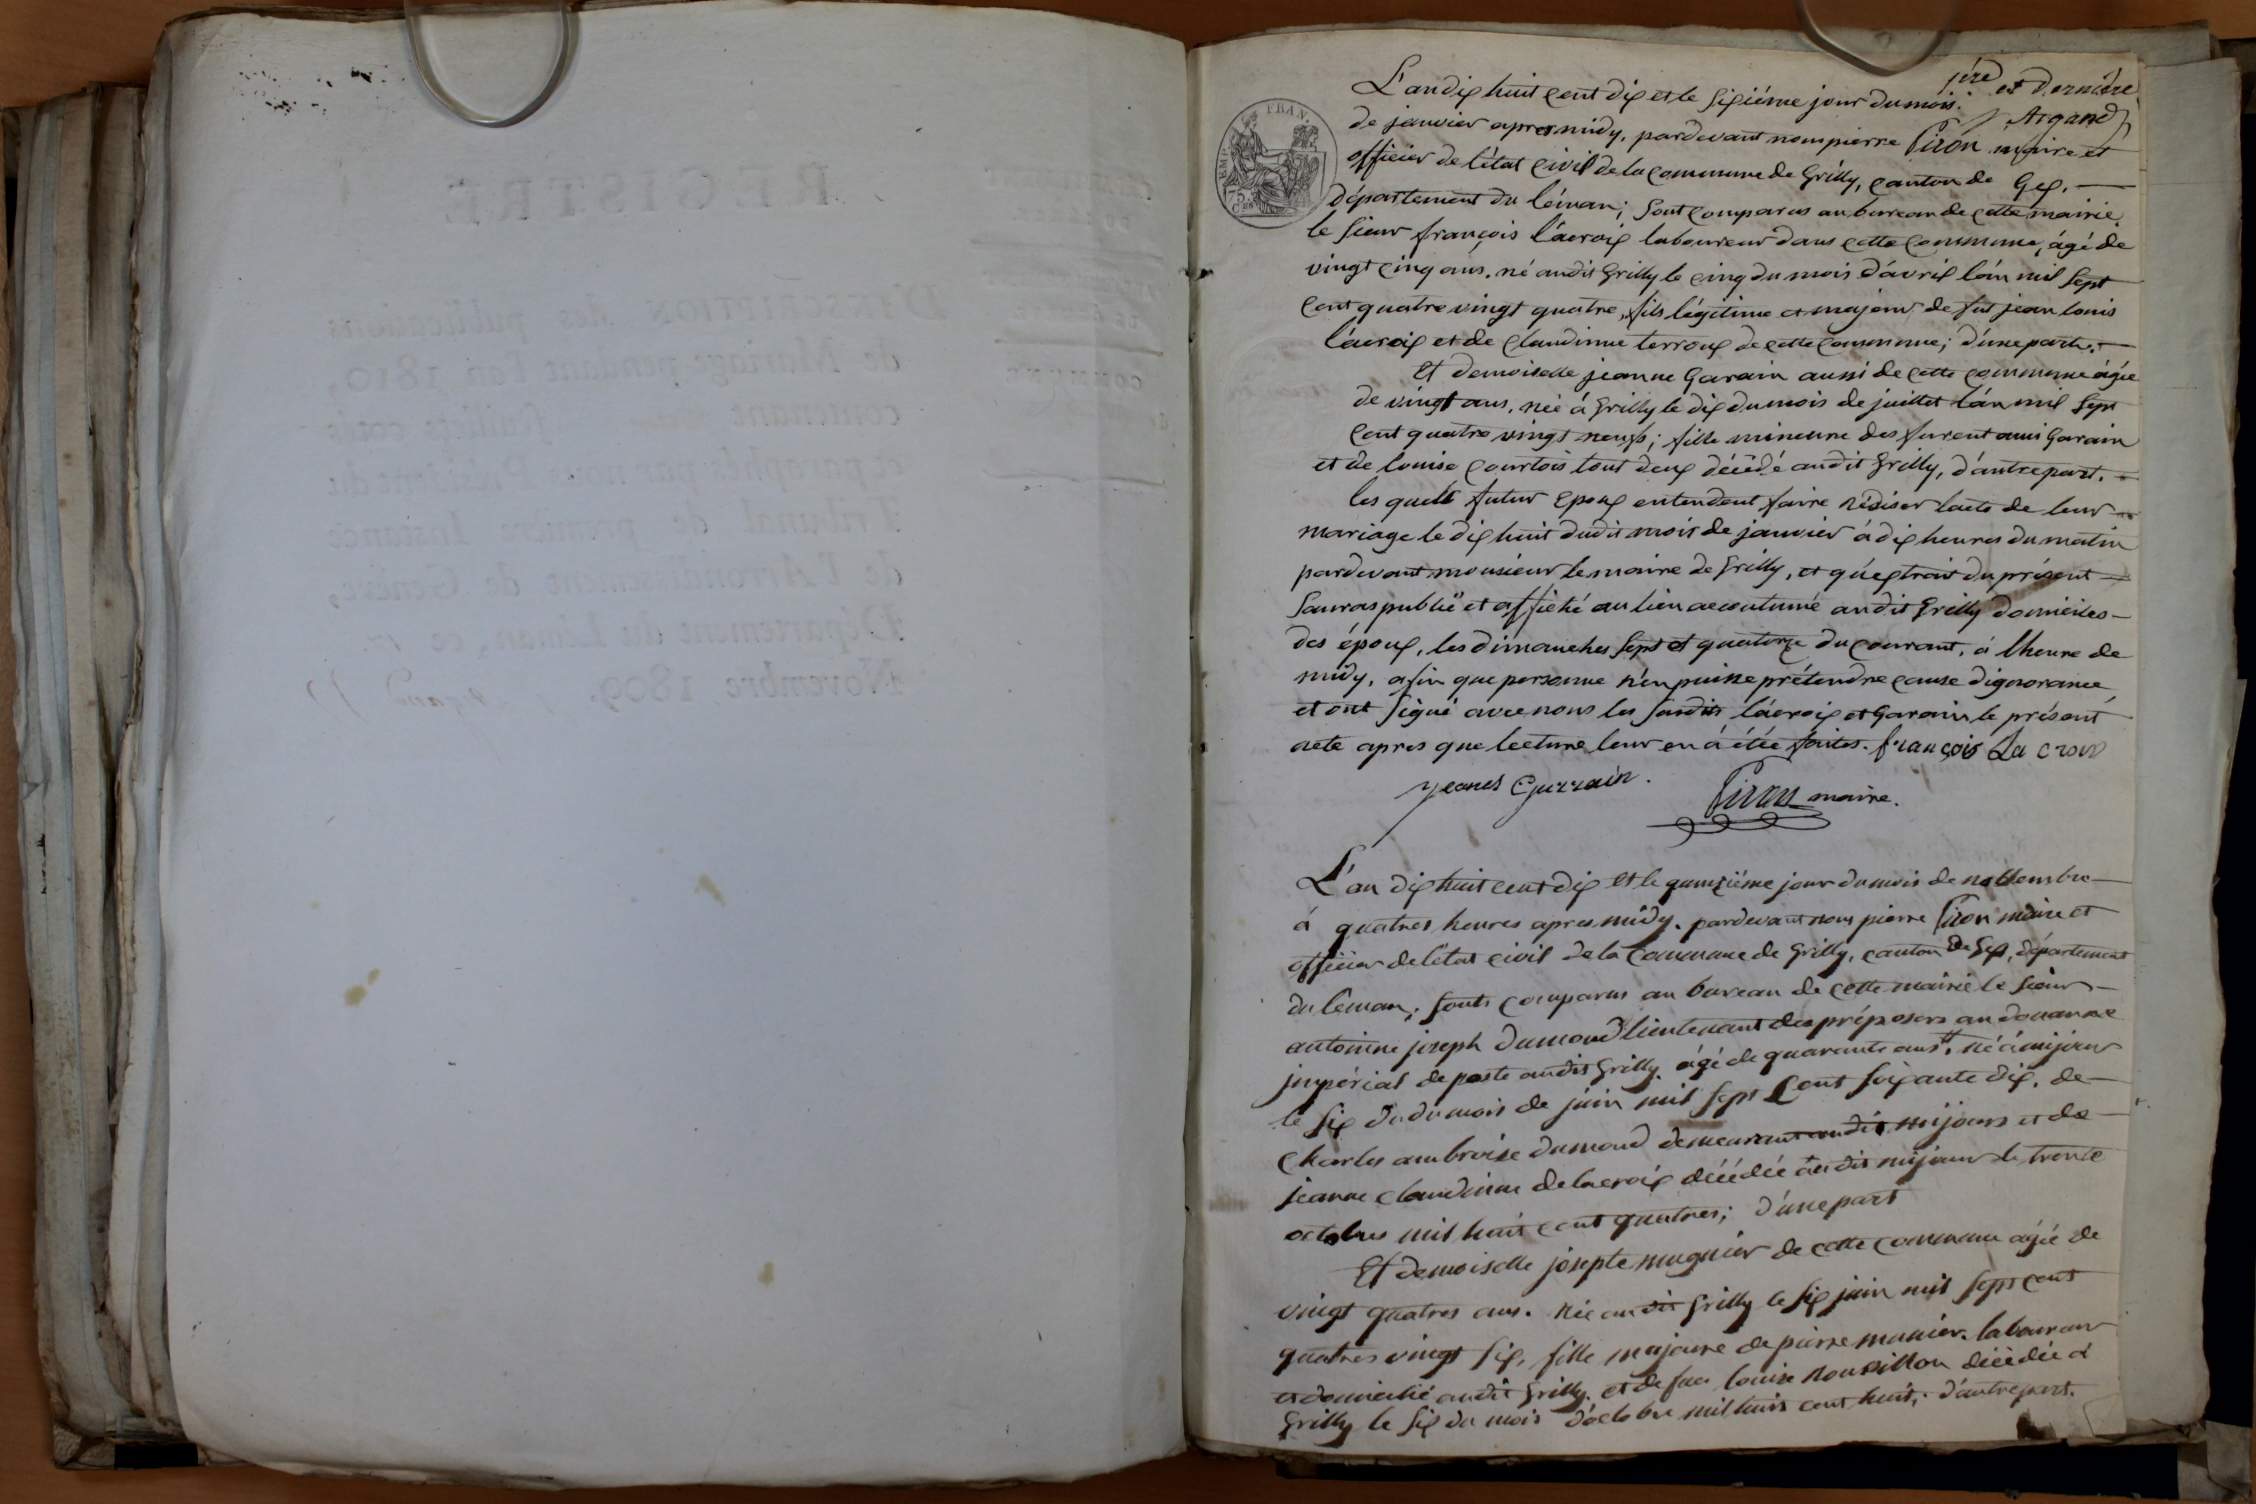 1ère et Dernière
Argand
L'an dix huit cent dix et le sixiéme jour du mois
de janvier apres midy, pardevant nous pierre Piron maire et
officier de l'état civil de la commune de Grilly, canton de Gex.
département du léman; sont comparus au bureau de cette mairie
le sieur françois lácroix laboureur dans cette commune, ágé de
vingt cinq ans. né audit Grilly le cinq du mois d'ávril l'an mil sept
cent quatre vingt quatre, fils légitime et majeur de fut jean louis
lácroix et de Claudinne terroux de cette commune; d'une part.
Et demoiselle jeanne Garain aussi de cette commune ágée
de vingt ans, née á Grilly le dix du mois de juillet l'an mil sept
cent quatre vingt neufs; fille mineure des furent ami Garain
et de louise Courtois tout deux décédé audit Grilly, d'autre part.
les quels futur epoux entendent faire rédiser l'acte de leur
mariage le dix huit dudit mois de janvier á dix heures du matin
pardevant monsieur le maire de Grilly, et qu'extrait du présent
sauras publié et affiché au lieu accoutumé audit Grilly domiciles
des époux, les dimanches sept et quatorze du courant, á l'heure de
midy, afin que personne n'en puisse prétendre cause d'ignorance
et ont signé avec nous les susdits lácroix et Garain le présent
acte apres que lecture leur en á étée faites. françois La croix
jeanes Garrain.
Piron maire.
L'an dix huit cent dix Et le quinziéme jour du mois de novembre
á quatres heures apres midy. pardevant nous pierre Piron maire et
officier de l'état civil de la Commune de Grilly, canton de Gex, département
du léman, sonts comparus au bureau de cette mairie le sieur
antoinne joseph Dumond lieutenant des préposers au douanne
jmpérial de poste audit Grilly. ágé de quarante ans, né á mijoux
le six du dumois de juin mil sept Cent soixante dix. de
Charles ambroise dumond demeurant audit mijoux et de
jeanne Claudinne delacroix décédée audit mijoux le trente
octobres mil huit cent quatres; d'une part
Et demoiselle josepte mugnier de cette commune ágée de
vingt quatres ans. née audit Grilly le six juin mil sept cent
quatres vingt six, fille majeure de pierre munier. laboureur
et domicilié audit Grilly. et de feu louise Roussillon décédée á
Grilly le six du mois d'octobre mil huit cent huit; d'autre part.